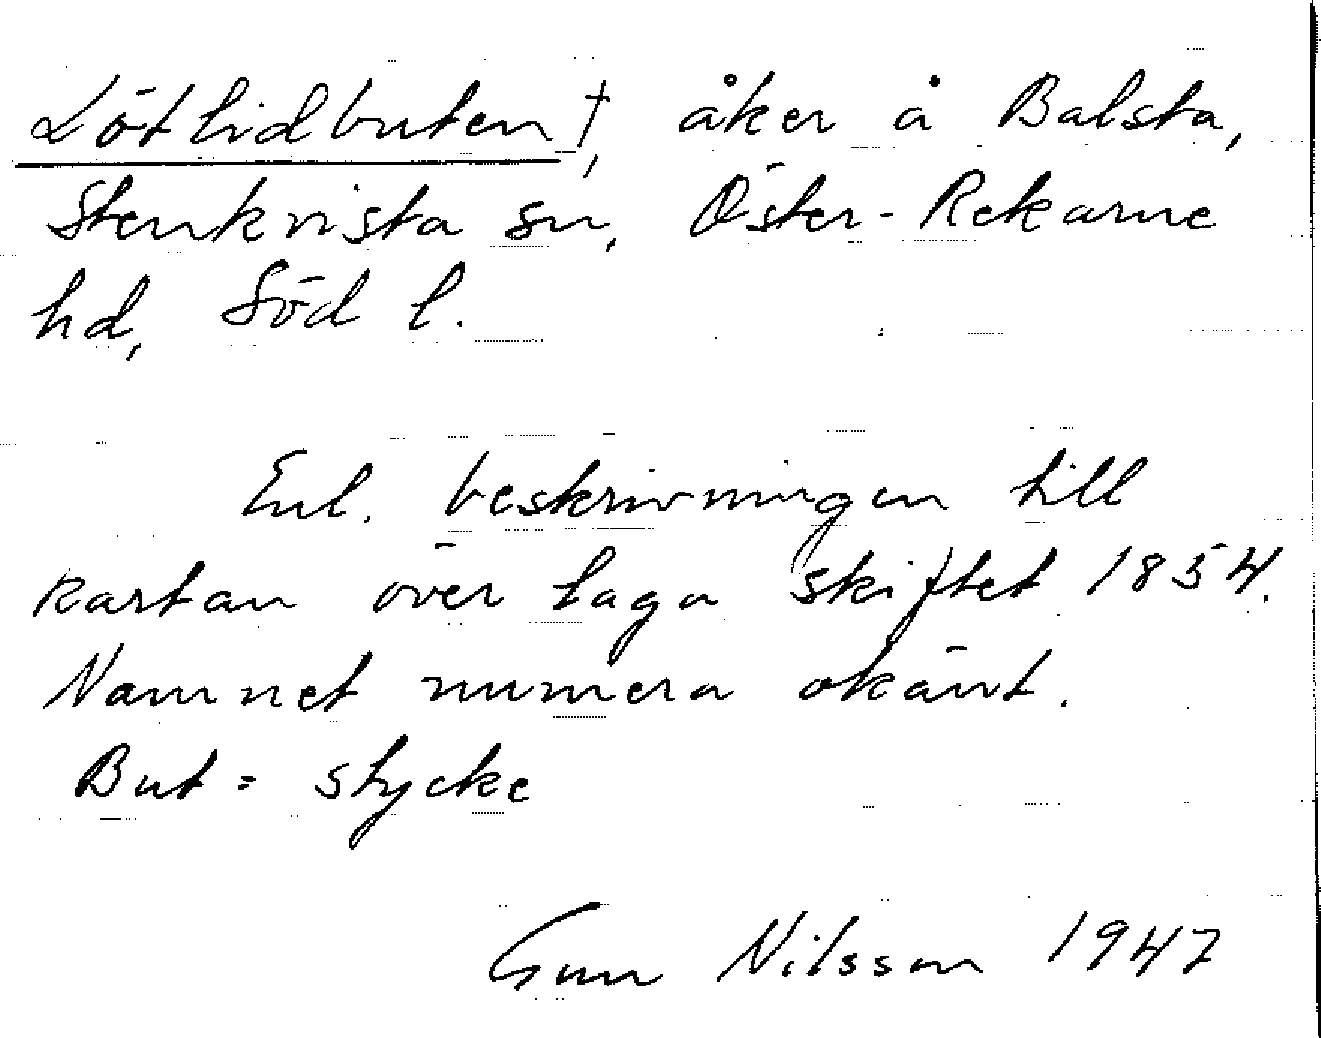 Lötlidbuten†, åker å Balsta,
Stenkvista sn, Öster-Rekarne
hd, Söd l.
Enl. beskrivningen till
kartan över laga skiftet 1854.
Namnet numera okänt.
But = stycke
Gun Nilsson 1947